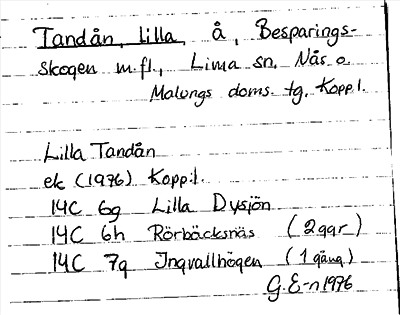 Tandån, lilla, å, Besparings-
skogen m.fl., Lima sn, Nås o
Malungs doms. tg, Kopp.l.
Lilla Tandån
ek (1976) Kopp:l.
14C 6g Lilla Dysjön
14C 6h Rörbäcksnäs (2ggr)
14C 7g Ingvallhögen (1 gång)
G.E-n 1976